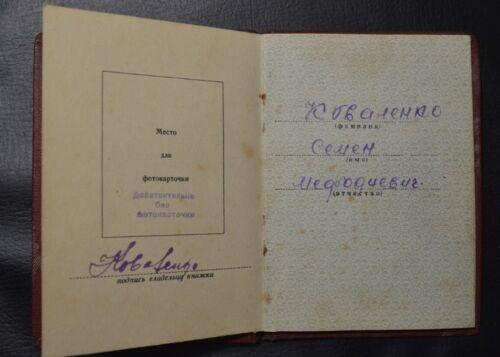 Место
для
фотокарточки
Действительно
без
фотокарточки
Коваленко
подпись владельца книжки
Коваленко
(фамилия)
Семен
(имя)
Мефодиевич
(отчество)